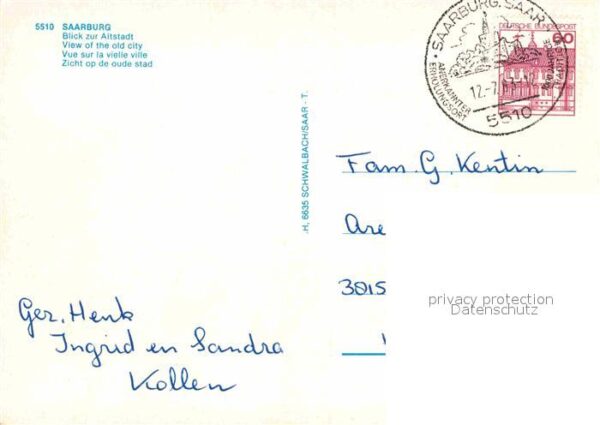 5510 SAARBURG
Blick zur Altstadt
View of the old city
Vue sur la vielle ville
Zicht op de oude stad
SAARBURG, SAAR
ANERKANNTER
ERHOLUNGSORT
5510
DEUTSCHE BUNDESPOST
60
H, 6635 SCHWALBACH/SAAR - T.
Fam. G. Kentin
Are
3015
Ger. Henk
Ingrid en Sandra
Kollen
privacy protection
Datenschutz